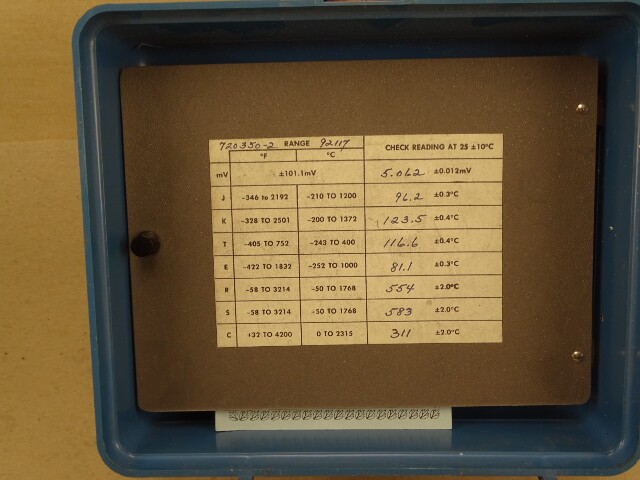 720350-2 RANGE 92117 CHECK READING AT 25 ±10°C
°F °C
mV ±101.1mV 5.062 ±0.012mV
J -346 to 2192 -210 TO 1200 96.2 ±0.3°C
K -328 TO 2501 -200 TO 1372 123.5 ±0.4°C
T -405 TO 752 -243 TO 400 116.6 ±0.4°C
E -422 TO 1832 -252 TO 1000 81.1 ±0.3°C
R -58 TO 3214 -50 TO 1768 554 ±2.0°C
S -58 TO 3214 -50 TO 1768 583 ±2.0°C
C +32 TO 4200 0 TO 2315 311 ±2.0°C